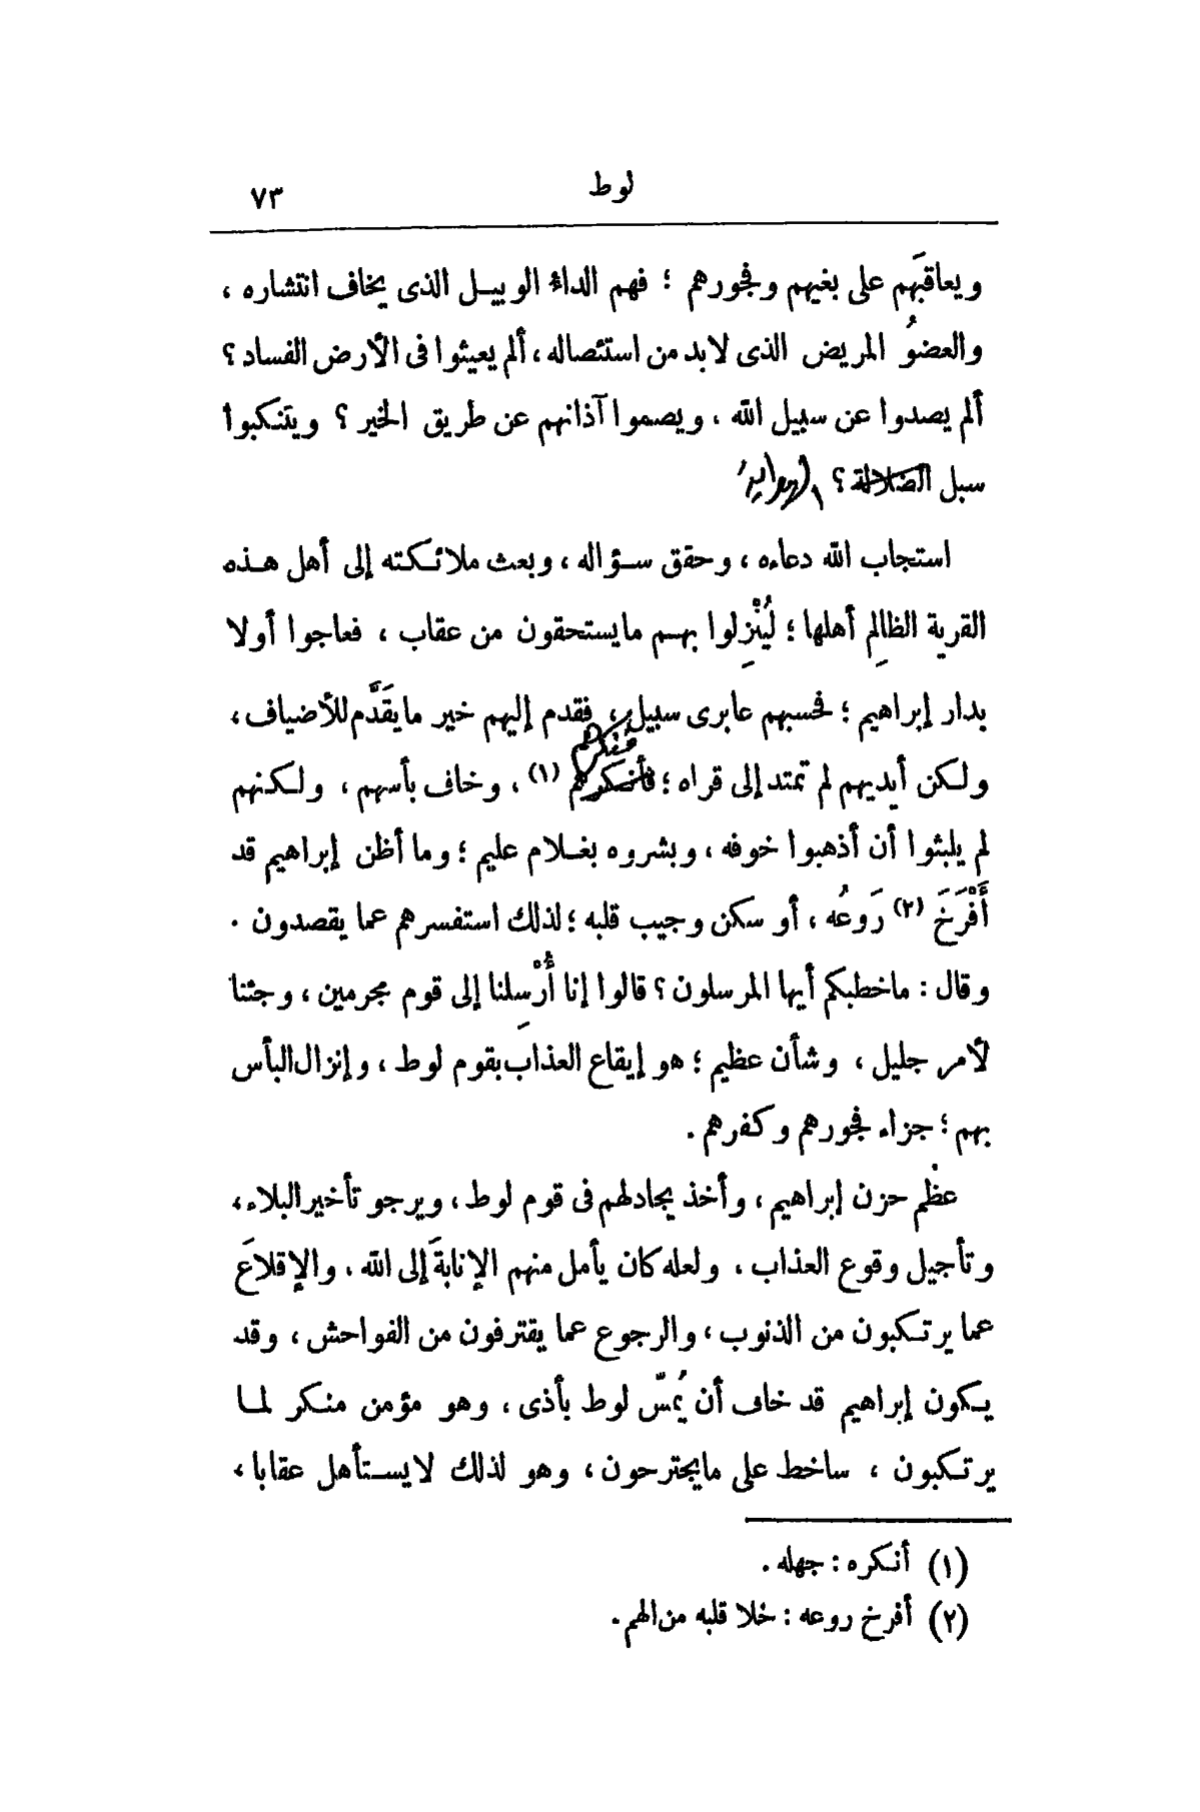 لوط ٧٣
ويعاقبَهم على بغيهم وفجورهم ؛ فهم الداء الوبيل الذى يخاف انتشاره ،
والعضوُ المريض الذى لابد من استئصاله ، ألم يعيثوا فى الأرض الفساد ؟
ألم يصدوا عن سبيل الله ، ويصموا آذانهم عن طريق الخير ؟ ويتنكبوا
سبل الضلالة ؟ الهداية
استجاب الله دعاءه ، وحقق سؤاله ، وبعث ملائكته إلى أهل هذه
القرية الظالِم أهلها ؛ ليُنْزِلوا بهم مايستحقون من عقاب ، فعاجوا أولا
بدار إبراهيم ؛ فحسبهم عابرى سبيل ، فقدم إليهم خير مايقَدَّم للأضياف ،
ولكن أيديهم لم تمتد إلى قراه ؛ فأنكرهم (١) ، وخاف بأسهم ، ولكنهم
لم يلبثوا أن أذهبوا خوفه ، وبشروه بغلام عليم ؛ وما أظن إبراهيم قد
أَفْرَخَ (٢) رَوعُه ، أو سكن وجيب قلبه ؛ لذلك استفسرهم عما يقصدون .
وقال : ماخطبكم أيها المرسلون ؟ قالوا إنا أُرْسِلنا إلى قوم مجرمين ، وجئنا
لأمر جليل ، وشأن عظيم ؛ هو إيقاع العذاب بقوم لوط ، وإنزال البأس
بهم ؛ جزاء فجورهم وكفرهم .
عظُم حزن إبراهيم ، وأخذ يجادلهم فى قوم لوط ، ويرجو تأخير البلاء ،
وتأجيل وقوع العذاب ، ولعله كان يأمل منهم الإنابةَ إلى الله ، والإقلاعَ
عما يرتكبون من الذنوب ، والرجوع عما يقترفون من الفواحش ، وقد
يكون إبراهيم قد خاف أن يُمسّ لوط بأذى ، وهو مؤمن منكر لما
يرتكبون ، ساخط على مايجترحون ، وهو لذلك لا يستأهل عقابا ،
(١) أنكره : جهله .
(٢) أفرخ روعه : خلا قلبه من الهم .